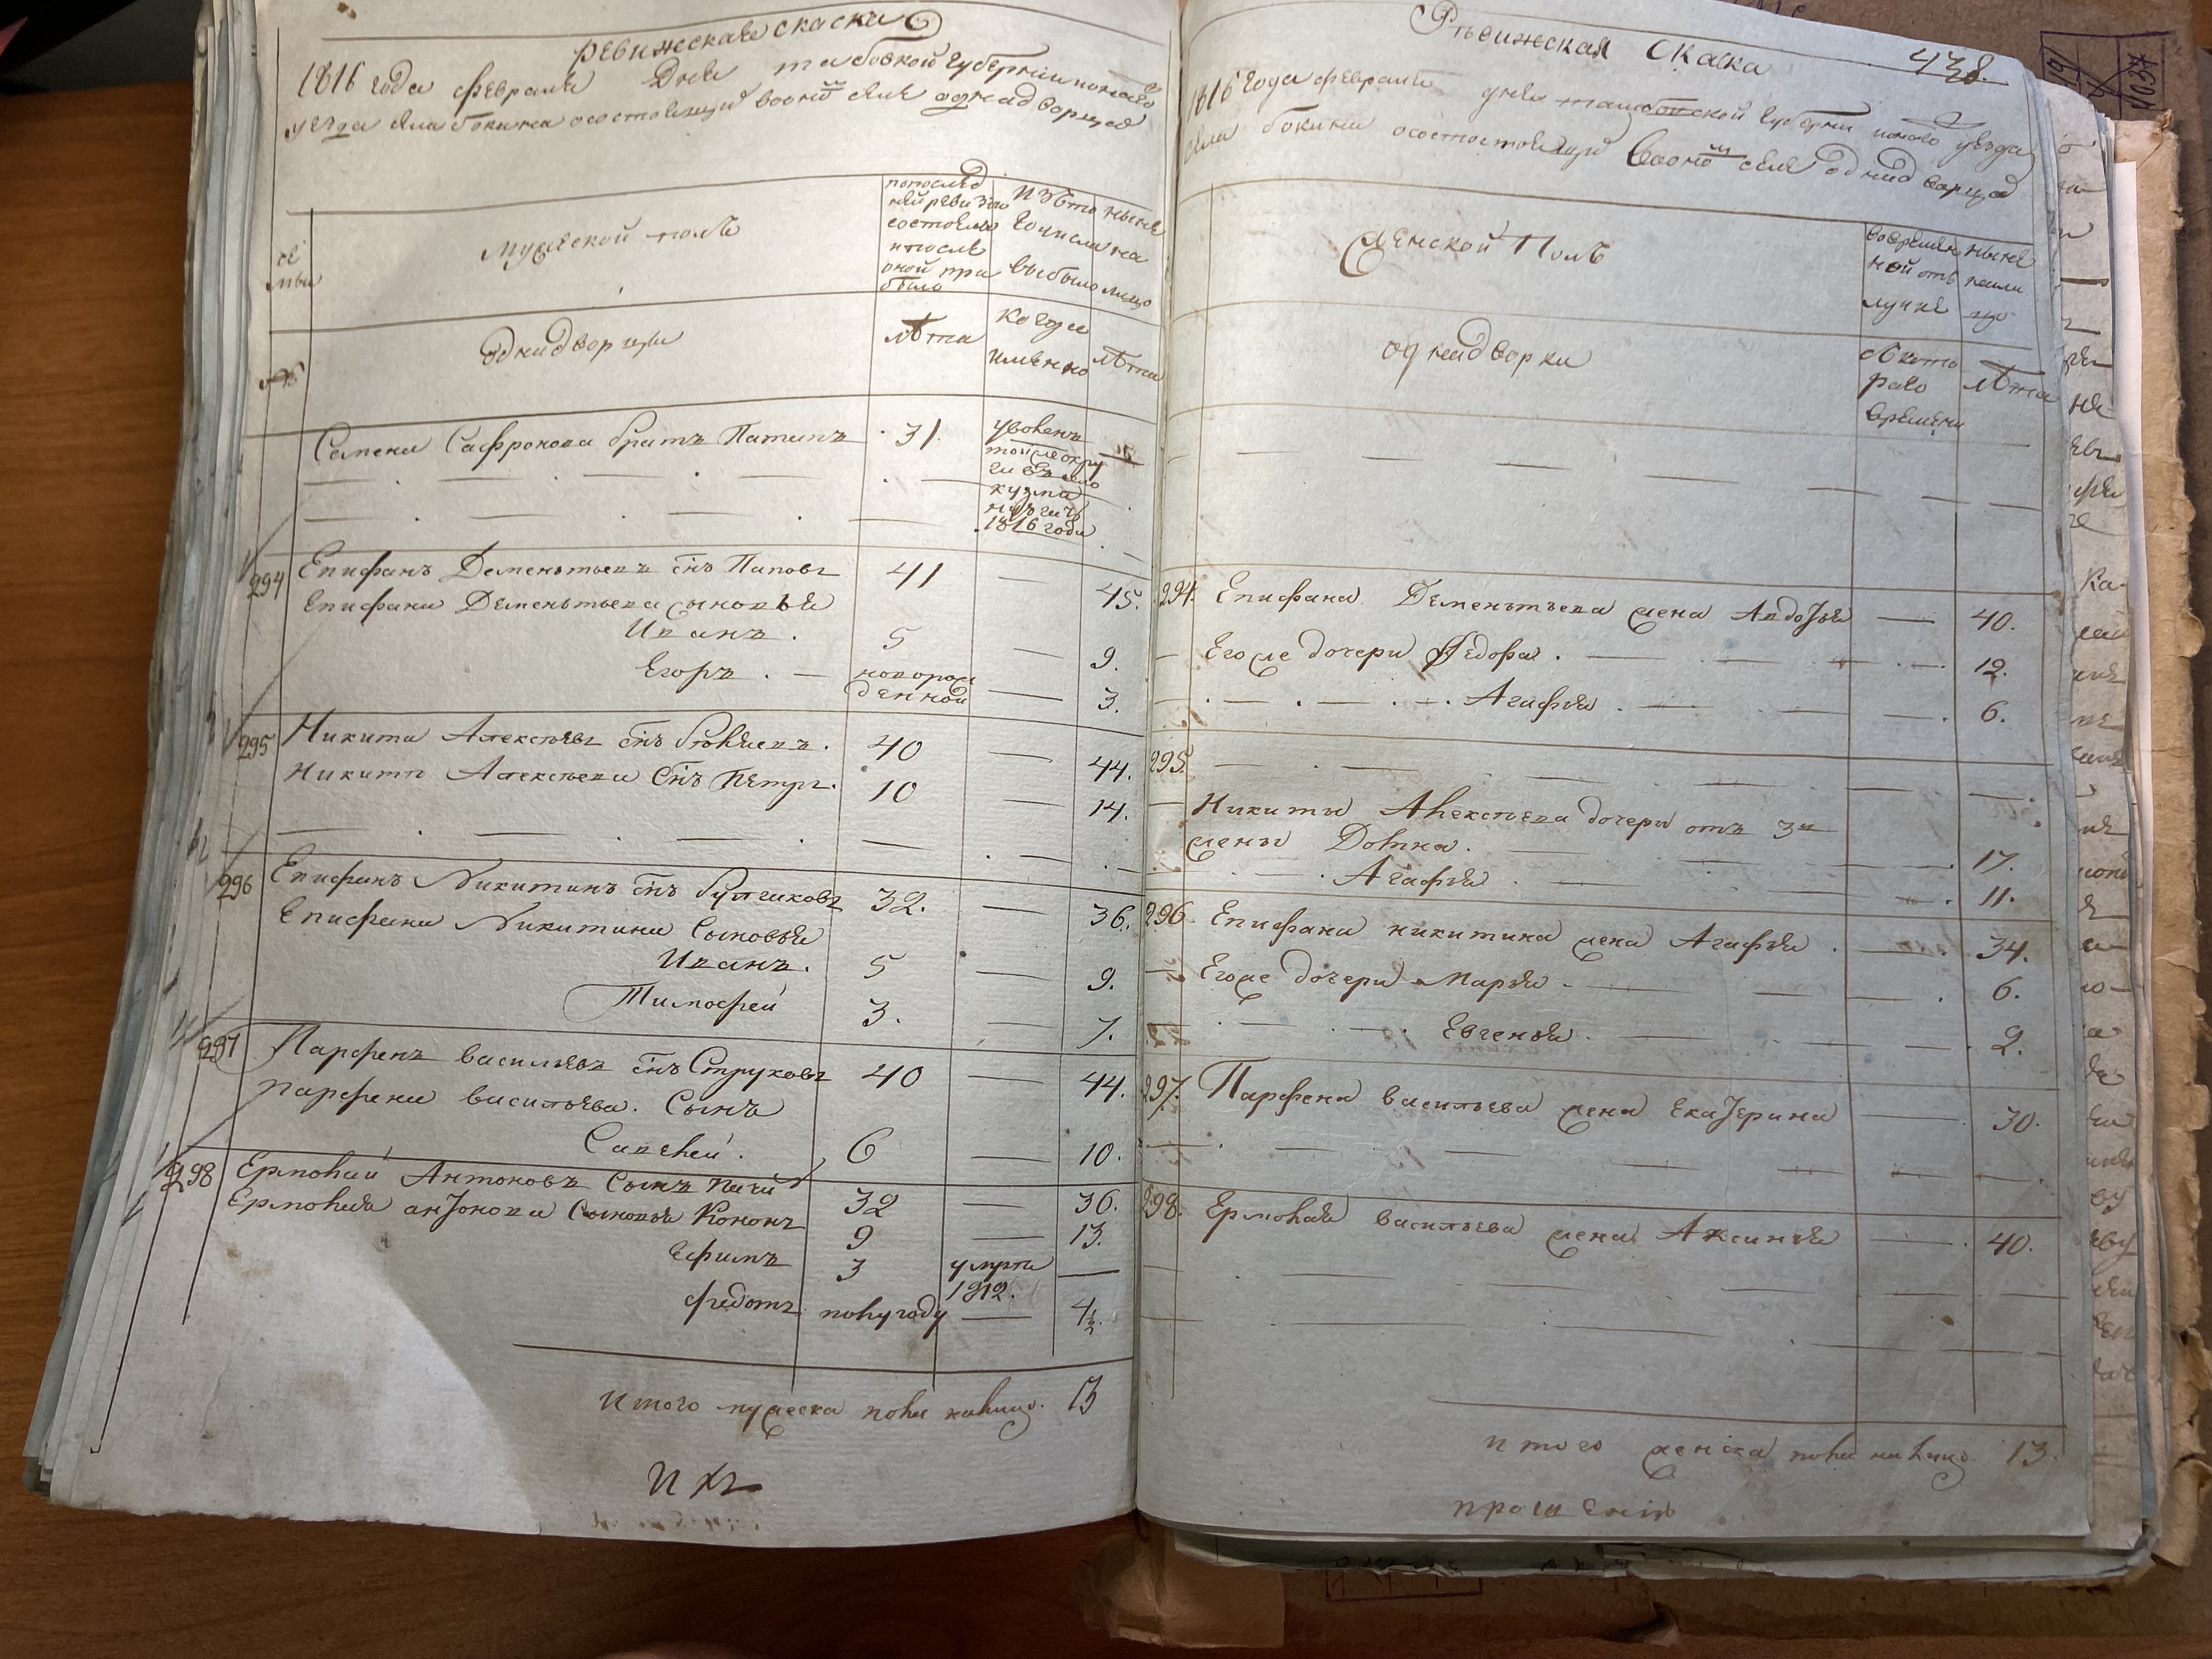 ревижская скаска
1816 года февраля дня танбовской губернии, тогожъ
уезда села бокина о состоящихъ во ономъ селе однадворцах
семьи
Мужеской полъ
попоследней ревизии состояло и после оной прибыло
Изъ того числа выбыло
ныне на лицо
№
однадворцы
лѣта
когда именно
лѣта
Семена Сафронова братъ Патапъ 31.
1816 года
294 Епифанъ Дементьевъ снъ Паповъ 41 — 45.
Епифана Дементьева сыновья
Иванъ. 5 — 9.
Егоръ. — новорожденной — 3.
295 Никита Алексѣевъ снъ 40 — 44.
Никиты Алексѣева снъ Петръ. 10 — 14.
296 Епифанъ Никитинъ снъ Булгаковъ 32. — 36.
Епифана Никитина Сыновья
Иванъ. 5 — 9.
Тимофей 3. — 7.
297 Парфенъ васильевъ снъ Струковъ 40 — 44.
парфена васильева. Сынъ
Савелей. 6 — 10.
298 Ермолай Антоновъ Сынъ 32 — 36.
Ермолая антонова Сыновья Кононъ 9 — 13.
Ефимъ 3 умре 1812. —
федотъ полугоду — 4½.
Итого мужеска пола налицо. 13
Их
Ревижская скаска
438.
1816 года февраля дня танбовской губерни тогожъ уезда
села бокина о состоящихъ во ономъ селе однадворцах
Женской Полъ
во временной отлучке
ныне налицо
однадворки
съ котораго времени
лѣта
294. Епифана Дементьева жена Авдотья — 40.
Его же дочери Федора. — 12.
Агафья. — 6.
295.
Никиты Алексѣева дочери отъ 3й
жены Домна. — 17.
Агафья — 11.
296. Епифана никитина жена Агафья. — 34.
Его же дочери Марья — 6.
Евгенья. — 2.
297. Парфена васильева жена Екатерина — 30.
298. Ермолая васильева жена Аксинья — 40.
итого женска пола налицо. 13.
прошения